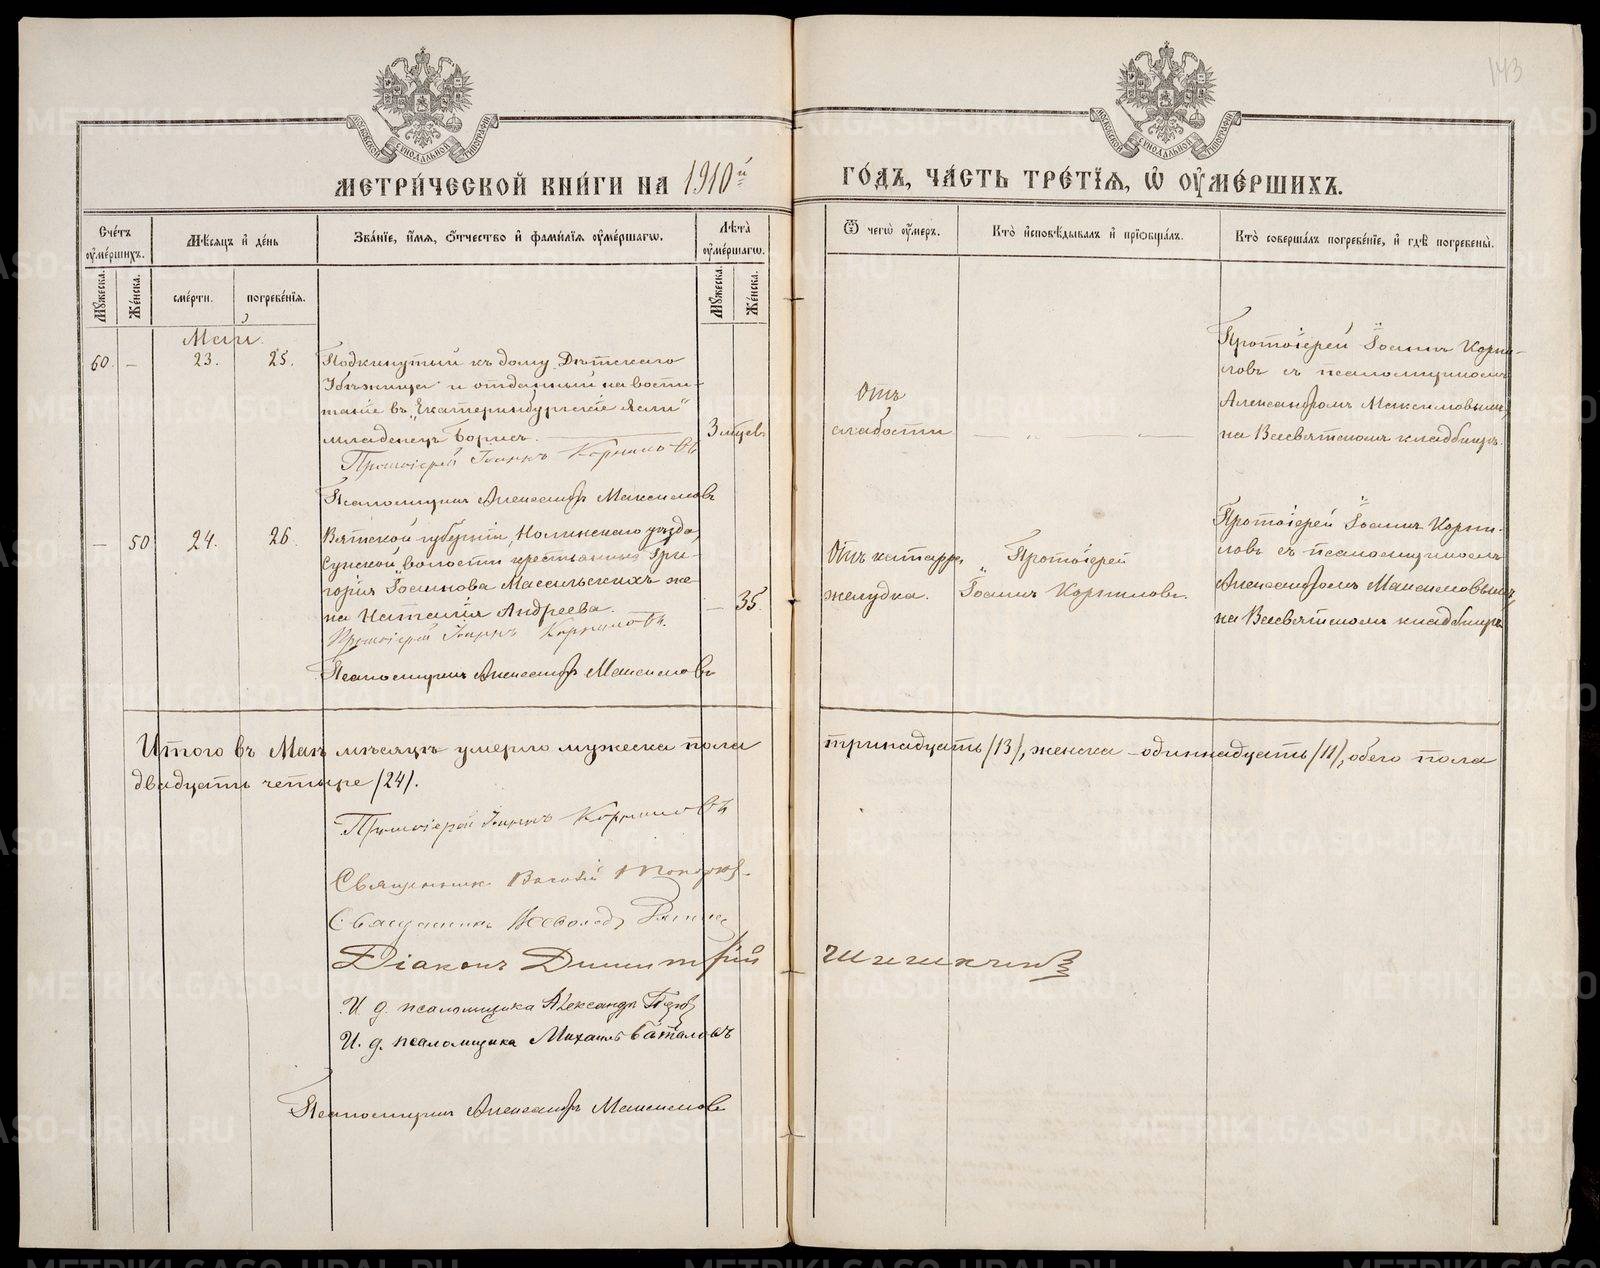 143
МОСКОВСКОЙ СѴНОДАЛЬНОЙ ТИПОГРАФІИ
МОСКОВСКОЙ СѴНОДАЛЬНОЙ ТИПОГРАФІИ
МЕТРИ́ЧЕСКОЙ КНИ́ГИ НА 1910й
ГО́ДЪ, ЧА́СТЬ ТРЕ́ТІЯ, Ѽ ОУ҆МЕ́РШИХЪ.
Сче́тъ оу҆ме́ршихъ.
Мѣ́сяцъ и҆ де́нь
Зва́нїе, и҆́мя, ѻ҆́тчество и҆ фами́лїя оу҆ме́ршагѡ.
Лѣ́та оу҆ме́ршагѡ.
Ѿ чегѡ̀ оу҆́меръ.
Кто̀ и҆сповѣ́дывалъ и҆ прїѡбща́лъ.
Кто̀ соверша́лъ погребе́нїе, и҆ гдѣ̀ погребены̀.
Мꙋ́жеска.
Же́нска.
сме́рти.
погребе́нїя.
Мꙋ́жеска.
Же́нска.
Май.
60. – 23. 25.
Подкинутый къ дому Дѣтскаго
Убѣжища и отданный на воспи-
таніе въ „Екатеринбургскіе Ясли“
младенецъ Борисъ.
3 мѣсев
Протоіерей Іоаннъ Корниловъ
Псаломщикъ Александръ Максимовъ
Отъ
слабости
— „ —
Протоіерей Іоаннъ Корни-
ловъ съ псаломщикомъ
Александромъ Максимовымъ,
на Всесвятскомъ кладбищѣ.
– 50 24. 26
Вятской губерніи, Нолинскаго уѣзда,
Сунской волости крестьянина Гри-
горія Іоаннова Массильскихъ же-
на Наталія Андреева.
– 35.
Протоіерей Іоаннъ Корниловъ.
Псаломщикъ Александръ Максимовъ
Отъ катарра
желудка.
Протоіерей
Іоаннъ Корниловъ.
Протоіерей Іоаннъ Корни-
ловъ съ псаломщикомъ
Александромъ Максимовымъ,
на Всесвятскомъ кладбищѣ
Итого въ Маѣ мѣсяцѣ умерло мужеска пола
тринадцать /13/, женска – одиннадцать /11/, обего пола
двадцать четыре /24/.
Протоіерей Іоаннъ Корниловъ
Священникъ Василій
Священникъ Всеволодъ
Діаконъ Димитрій
Шишикинъ
И. д. псаломщика Александръ
И. д. псаломщика Михаилъ Баталовъ
Псаломщикъ Александръ Максимовъ
METRIKI.GASO-URAL.RU